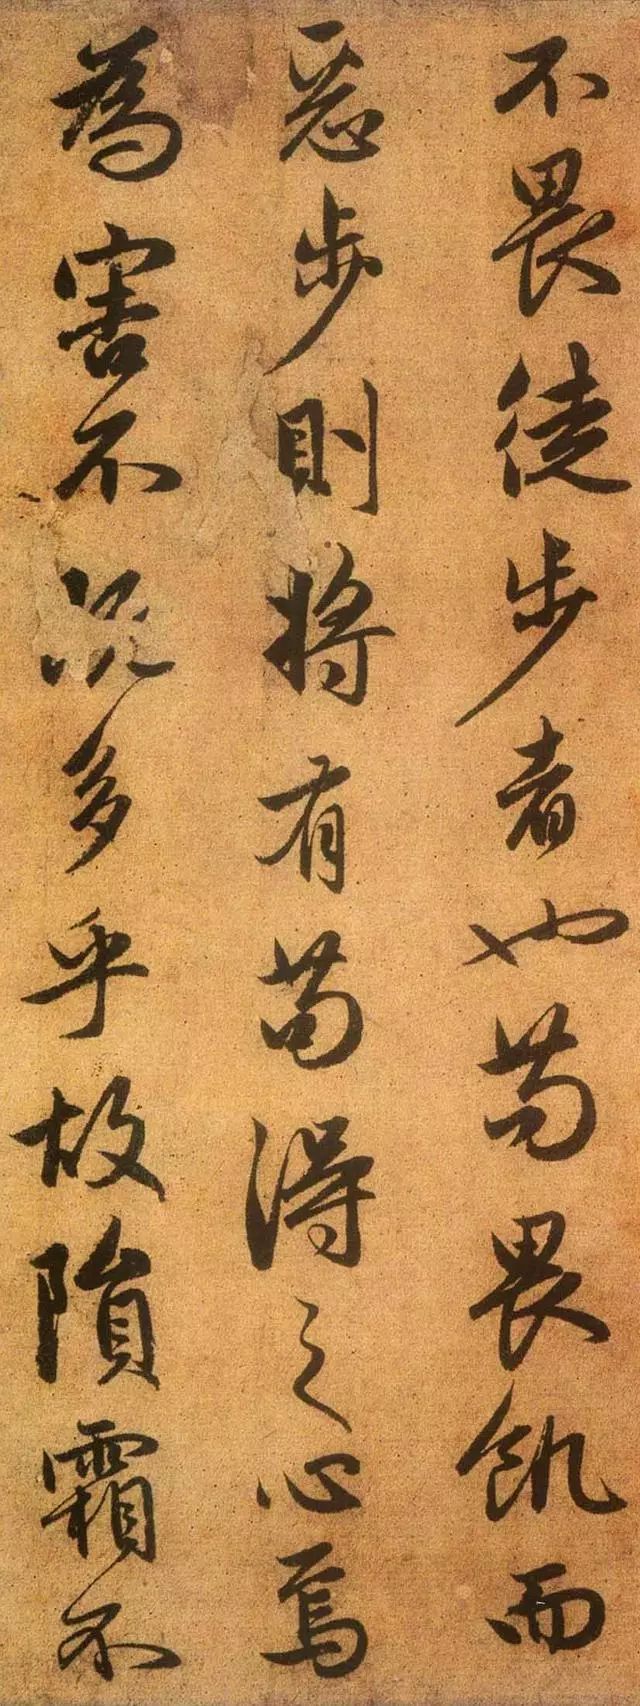 不畏徒步者也苟畏飢而
惡步則將有苟得之心焉
為害不況多乎故隕霜不